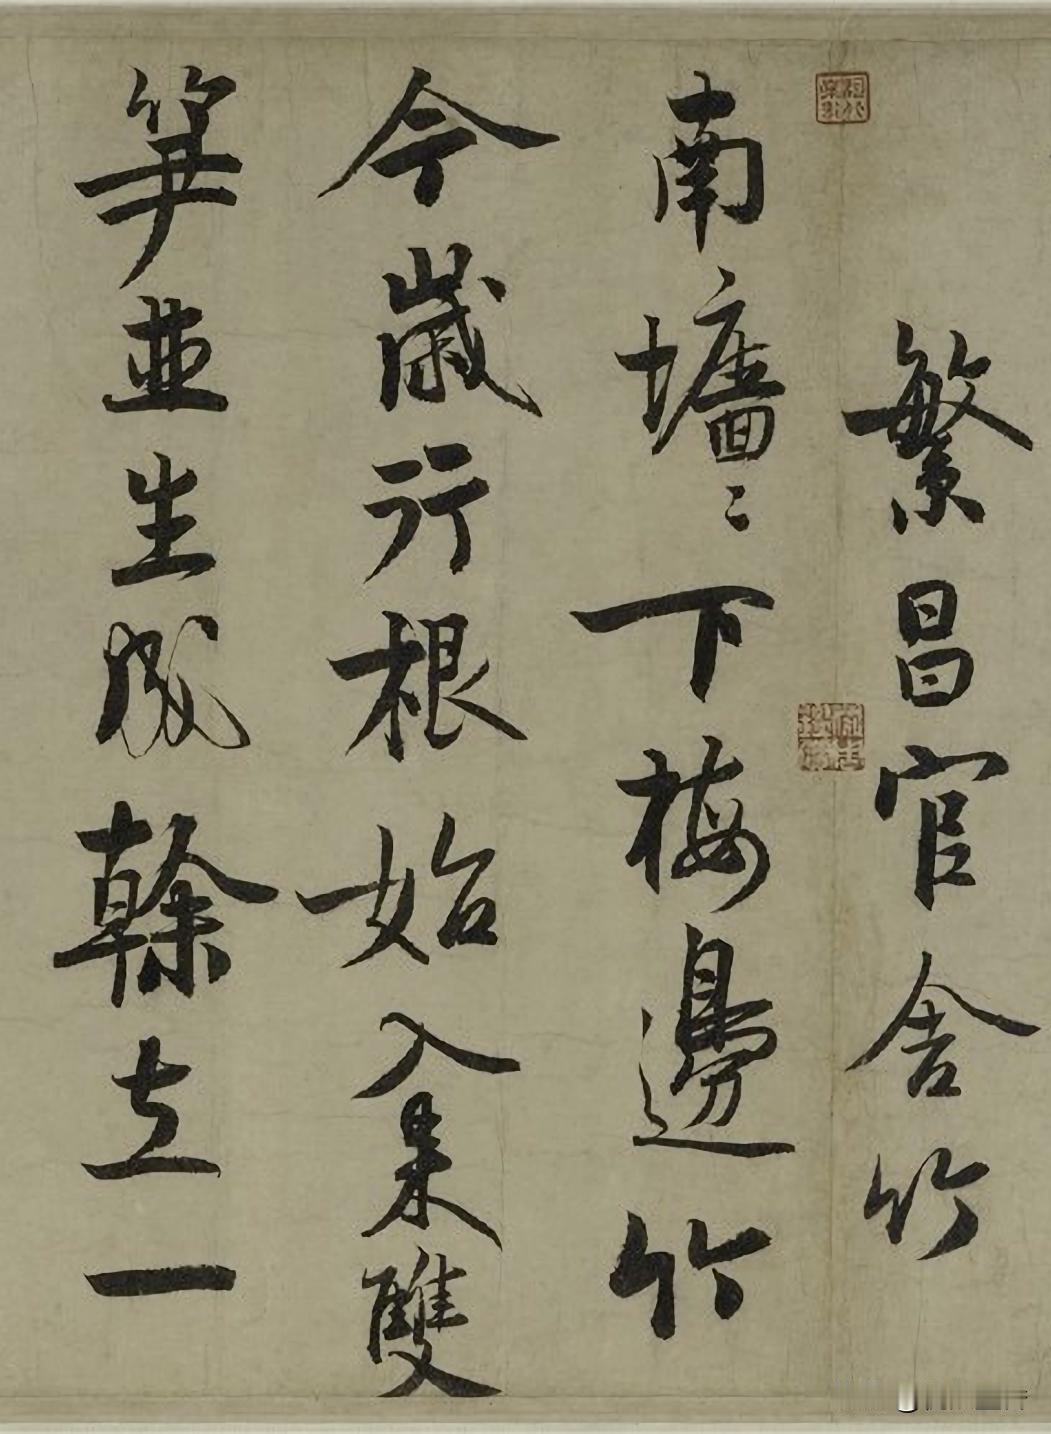 繁昌官舍竹
南墻〻下梅邊竹
今歲行根始入来雙
笋並生成榦立一